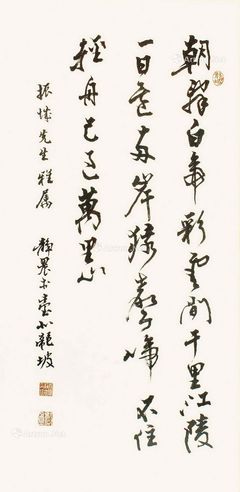 朝辭白帝彩雲間千里江陵
一日還兩岸猿聲啼不住
輕舟已過萬重山
振 先生雅屬 靜農於臺北龍坡